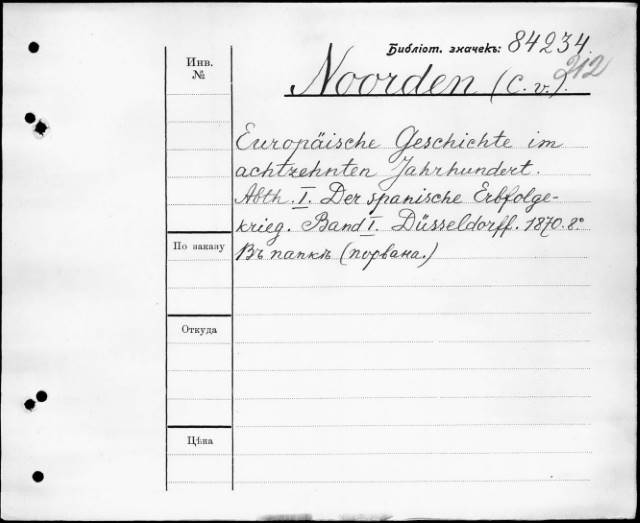 Библіот. значекъ: 84234.
212
Инв.
№
Noorden (C. v.).
Europäische Geschichte im
achtzehnten Jahrhundert.
Abth. I. Der spanische Erbfolge-
krieg. Band I. Düsseldorff. 1870. 8°
По заказу
Въ папкѣ (порвана.)
Откуда
Цѣна